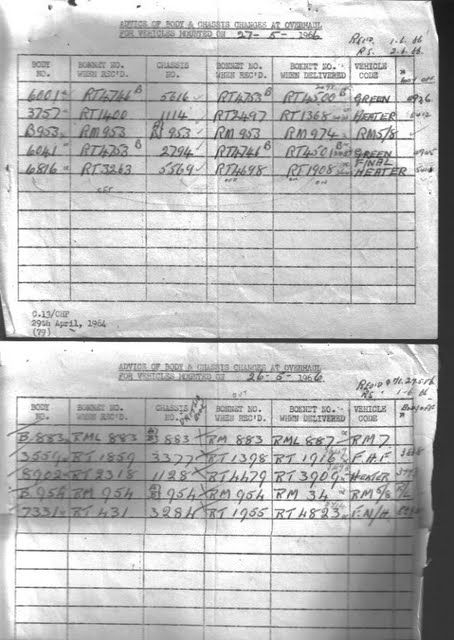 ADVICE OF BODY & CHASSIS CHANGES AT OVERHAUL
FOR VEHICLES MOUNTED ON 27-5-1966
1-6-66
RS. 2-6-66
BODY NO. BONNET NO. WHEN REC'D. CHASSIS NO. BONNET NO. WHEN REC'D. BONNET NO. WHEN DELIVERED VEHICLE CODE
6001 RT4746B 5616 RT4753B RT4500B GREEN
3757 RT1400 1114 RT2497 RT1368 HEATER
B953 RM953 953 RM953 RM974 RM5/8
6041 RT4753B 2794 RT4746B RT4501B GREEN
6816 RT3263 5569 RT4698 RT1908 FINAL HEATER
C.13/CHP
29th April, 1964
(79)
ADVICE OF BODY & CHASSIS CHANGES AT OVERHAUL
FOR VEHICLES MOUNTED ON 26-5-1966
RS. 1-6-66
OUT
BODY NO. BONNET NO. WHEN REC'D. CHASSIS NO. BONNET NO. WHEN REC'D. BONNET NO. WHEN DELIVERED VEHICLE CODE
B.883 RML 883 883 RM 883 RML 887 RM7
3559 RT1859 3377 RT1398 RT1916 F.H.F
8902 RT2318 1128 RT4479 RT3909 HEATER
B954 RM 954 954 RM954 RM 34 RM5/8
7331 RT 431 3284 RT1955 RT4823 F.N/H